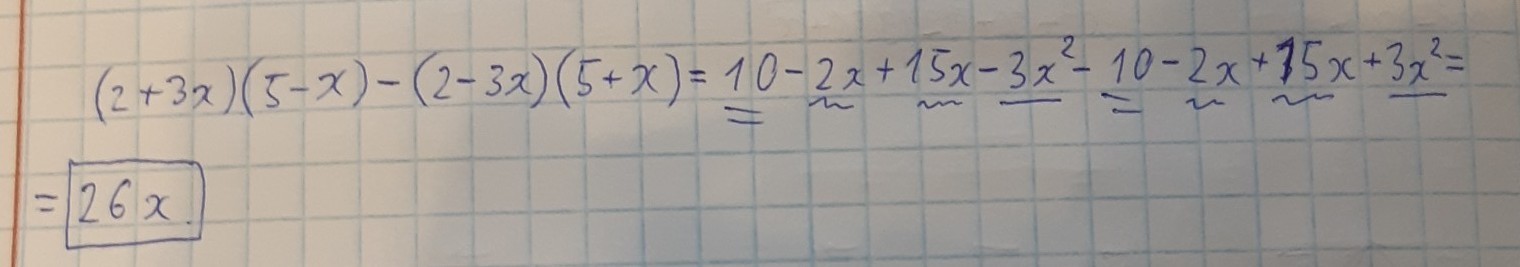 (2+3x)(5-x)-(2-3x)(5+x)=10-2x+15x-3x²-10-2x+15x+3x²=
=26x.